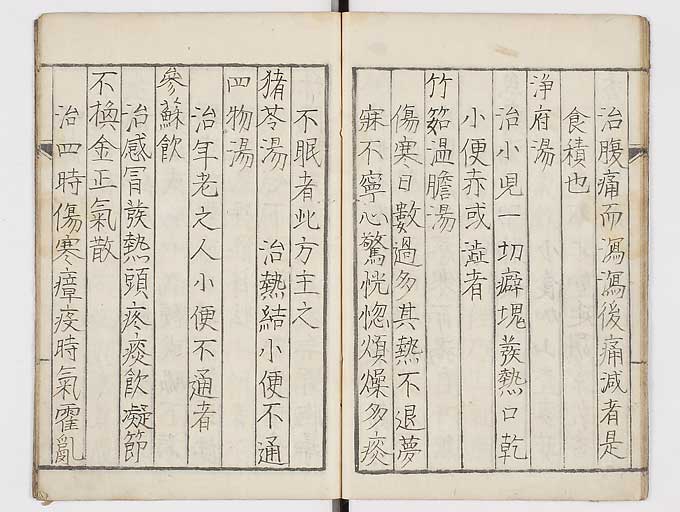 治腹痛而瀉瀉後痛減者是
食積也
浄府湯
治小児一切癖塊蕟熱口乾
小便赤或澁者
竹筎温膽湯
傷寒日數過多其熱不退夢
寐不寧心驚恍惚煩燥多痰
不眠者此方主之
猪苓湯　治熱結小便不通
四物湯
治年老之人小便不通者
參蘇飲
治感冒蕟熱頭疼痰飲凝節
不換金正氣散
治四時傷寒瘴疫時氣霍亂